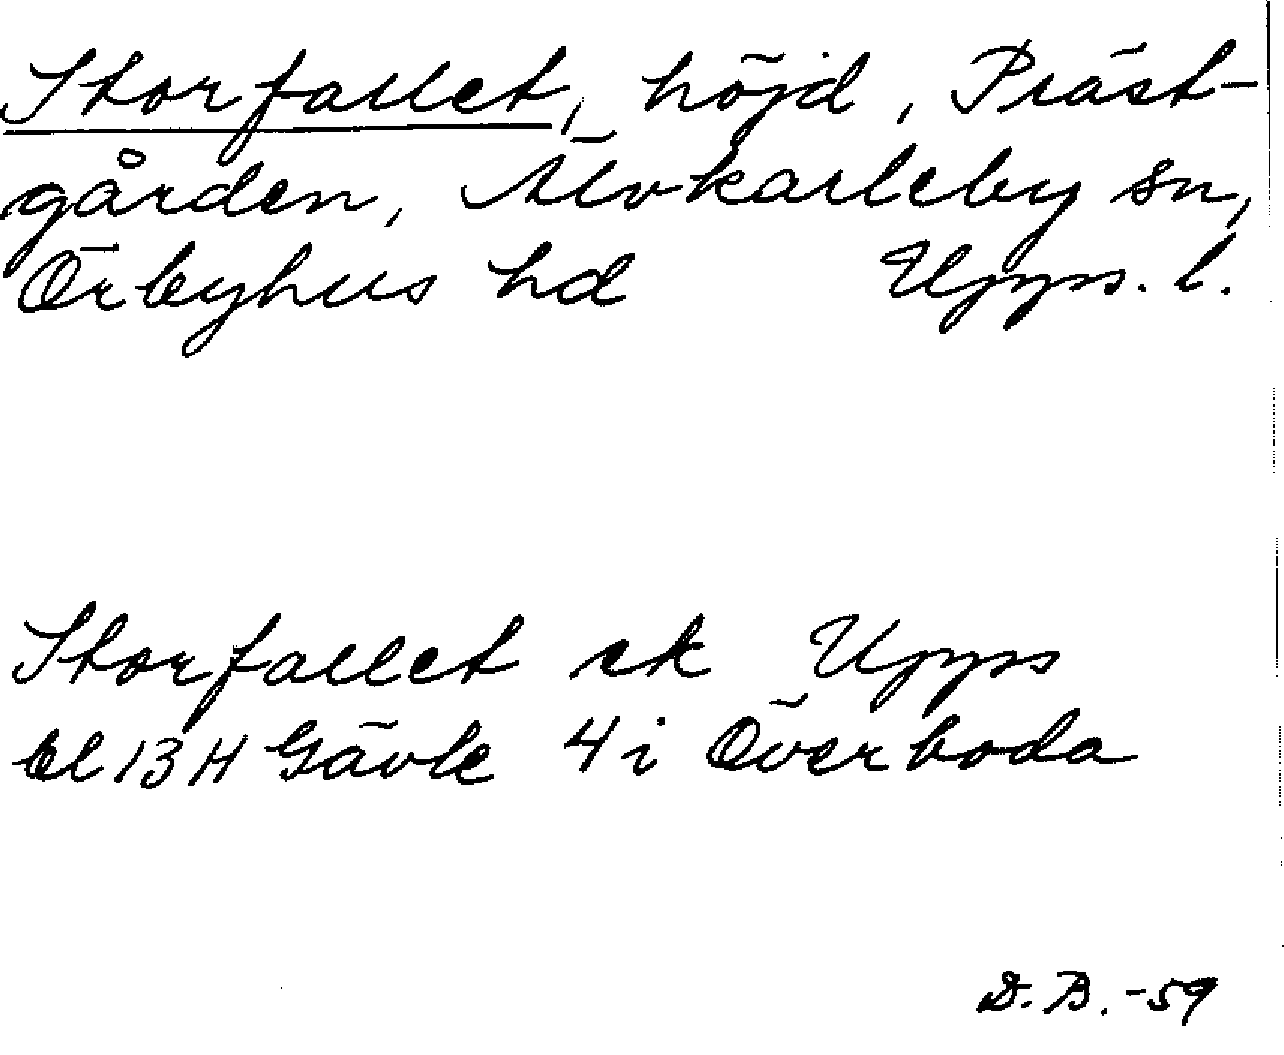 Storfallet, höjd, Präst-
gården, Älvkarleby sn,
Örbyhus hd Upps. l.
Storfallet ek Upps
bl 13 H Gävle 4 i Överboda
D. B. -59